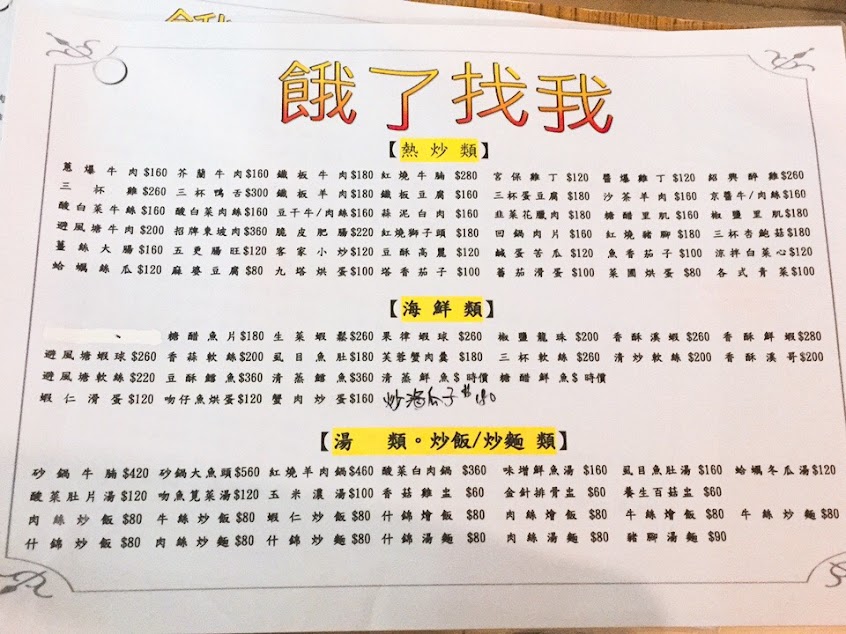 餓了找我
【熱炒類】
蔥爆牛肉$160 芥蘭牛肉$160 鐵板牛肉$180 紅燒牛腩$280 宮保雞丁$120 醬爆雞丁$120 紹興醉雞$260
三杯雞$260 三杯鴨舌$300 鐵板羊肉$180 鐵板豆腐$160 三杯蛋豆腐$180 沙茶羊肉$160 京醬牛/肉絲$160
酸白菜牛絲$160 酸白菜肉絲$160 豆干牛/肉絲$160 蒜泥白肉$160 韭菜花臘肉$180 糖醋里肌$160 椒鹽里肌$180
避風塘牛肉$200 招牌東坡肉$360 脆皮肥腸$220 紅燒獅子頭$180 回鍋肉片$160 紅燒豬腳$180 三杯杏鮑菇$180
薑絲大腸$160 五更腸旺$120 客家小炒$120 豆酥高麗$120 鹹蛋苦瓜$120 魚香茄子$100 涼拌白菜心$120
蛤蠣絲瓜$120 麻婆豆腐$80 九塔烘蛋$100 塔香茄子$100 蕃茄滑蛋$100 菜圃烘蛋$80 各式青菜$100
【海鮮類】
、 糖醋魚片$180 生菜蝦鬆$260 果律蝦球$260 椒鹽龍珠$200 香酥溪蝦$260 香酥鮮蝦$280
避風塘蝦球$260 香蒜軟絲$200 虱目魚肚$180 芙蓉蟹肉羹$180 三杯軟絲$260 清炒軟絲$200 香酥溪哥$200
避風塘軟絲$220 豆酥鱈魚$360 清蒸鱈魚$360 清蒸鮮魚$時價 糖醋鮮魚$時價
蝦仁滑蛋$120 吻仔魚烘蛋$120 蟹肉炒蛋$160 炒海瓜子$180
【湯 類。炒飯/炒麵 類】
砂鍋牛腩$420 砂鍋大魚頭$560 紅燒羊肉鍋$460 酸菜白肉鍋$360 味增鮮魚湯$160 虱目魚肚湯$160 蛤蠣冬瓜湯$120
酸菜肚片湯$120 吻魚莧菜湯$120 玉米濃湯$100 香菇雞盅$60 金針排骨盅$60 養生百菇盅$60
肉絲炒飯$80 牛絲炒飯$80 蝦仁炒飯$80 什錦燴飯$80 肉絲燴飯$80 牛絲燴飯$80 牛絲炒麵$80
什錦炒飯$80 肉絲炒麵$80 什錦炒麵$80 什錦湯麵$80 肉絲湯麵$80 豬腳湯麵$90